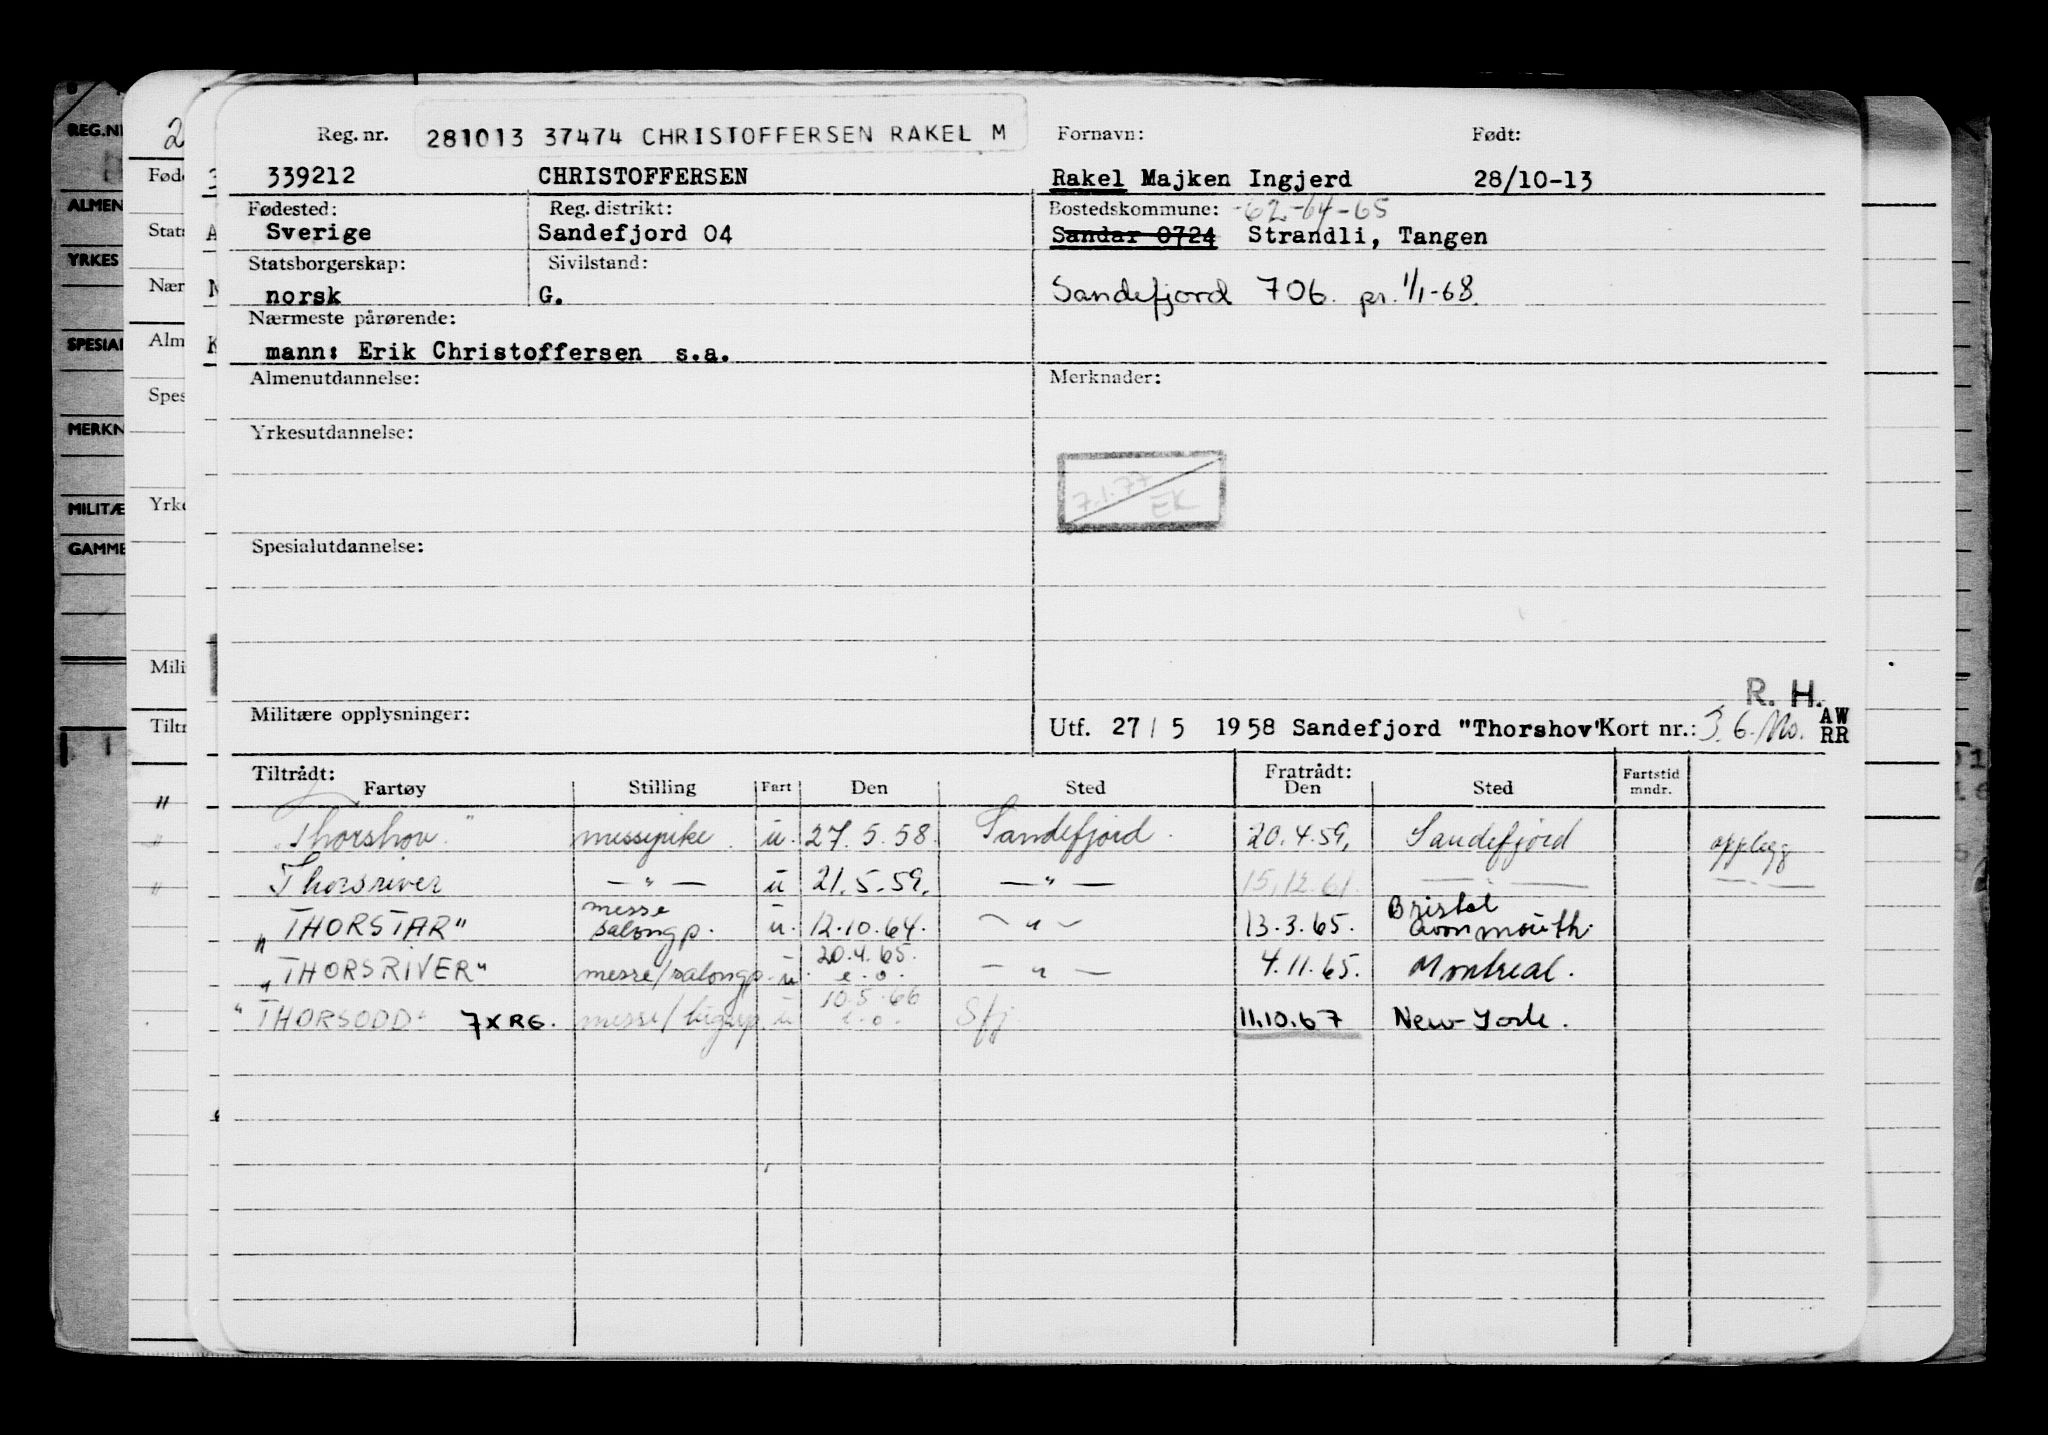 Reg. nr. 281013 37474 CHRISTOFFERSEN RAKEL M Fornavn: Født:
339212 CHRISTOFFERSEN Rakel Majken Ingjerd 28/10-13
Fødested: Reg. distrikt: Bostedskommune: -62-64-65
Sverige Sandefjord 04 Sandar 0724 Strandli, Tangen
Statsborgerskap: Sivilstand:
norsk G. Sandefjord 706. pr. 1/1-68.
Nærmeste pårørende:
mann: Erik Christoffersen s.a.
Almenutdannelse: Merknader:
Yrkesutdannelse:
7.1.77
EK
Spesialutdannelse:
R. H.
Militære opplysninger: Utf. 27/5 1958 Sandefjord "Thorshov" Kort nr.: AW
RR
Tiltrådt: Fratrådt: Fartstid
Fartøy Stilling Fart Den Sted Den Sted mndr.
"Thorshov" messepike u. 27.5.58. Sandefjord. 20.4.59. Sandefjord opplegg
Thorsriver — " — u 21.5.59. — " — 15.12.61. — " — — " —
"THORSTAR" messe salongp. u. 12.10.64. — " — 13.3.65. Bristol Avonmouth.
"THORSRIVER" messe/salongp. u 20.4.65. e.o. — " — 4.11.65. Montreal.
"THORSODD" 7XRG. messe/ u 10.5.66 e.o. Sfj 11.10.67 New York.
REG.NR
ALMEN
YRKES
SPESIAL
MERKN
MILITÆ
GAMME
2
Fød
Stats
Nær
Alm
Spes
Yrke
Mili
Tiltr